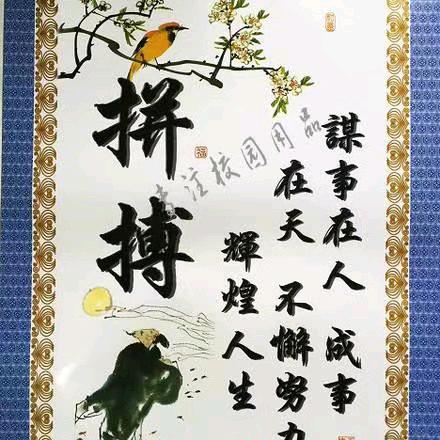 謀事在人 成事
在天 不懈努力
輝煌人生
拼搏
注校园用品